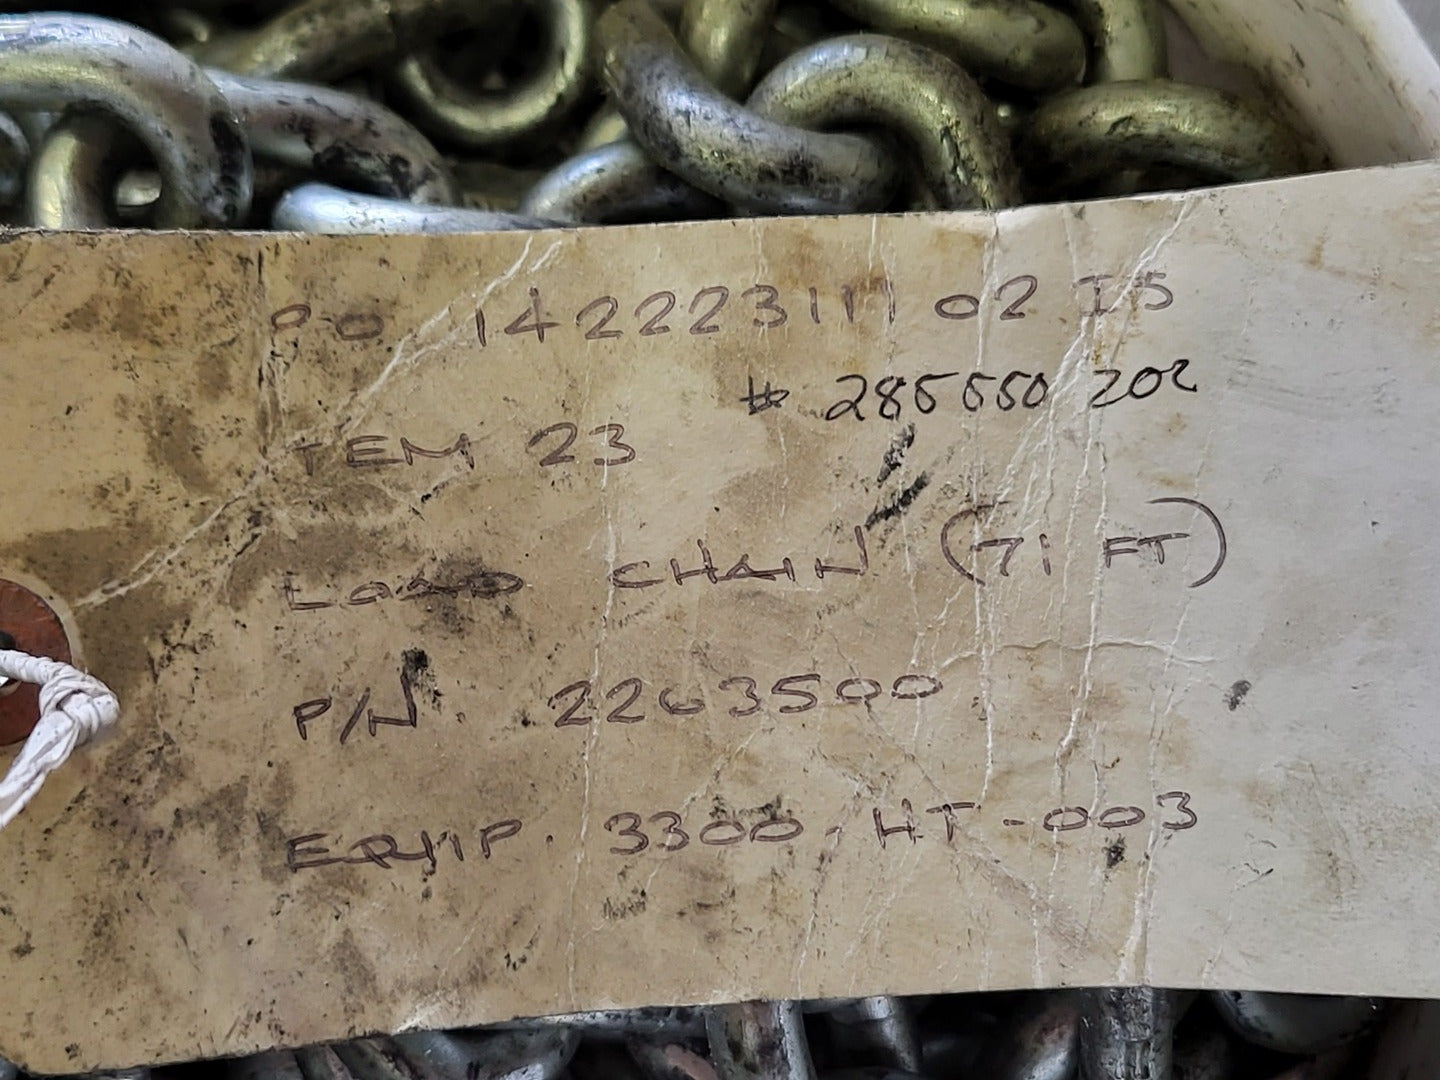 PO 142223111 02 I5
# 285550 202
ITEM 23
LOAD CHAIN (71 FT)
P/N. 2263500
EQUIP. 3300-HT-003